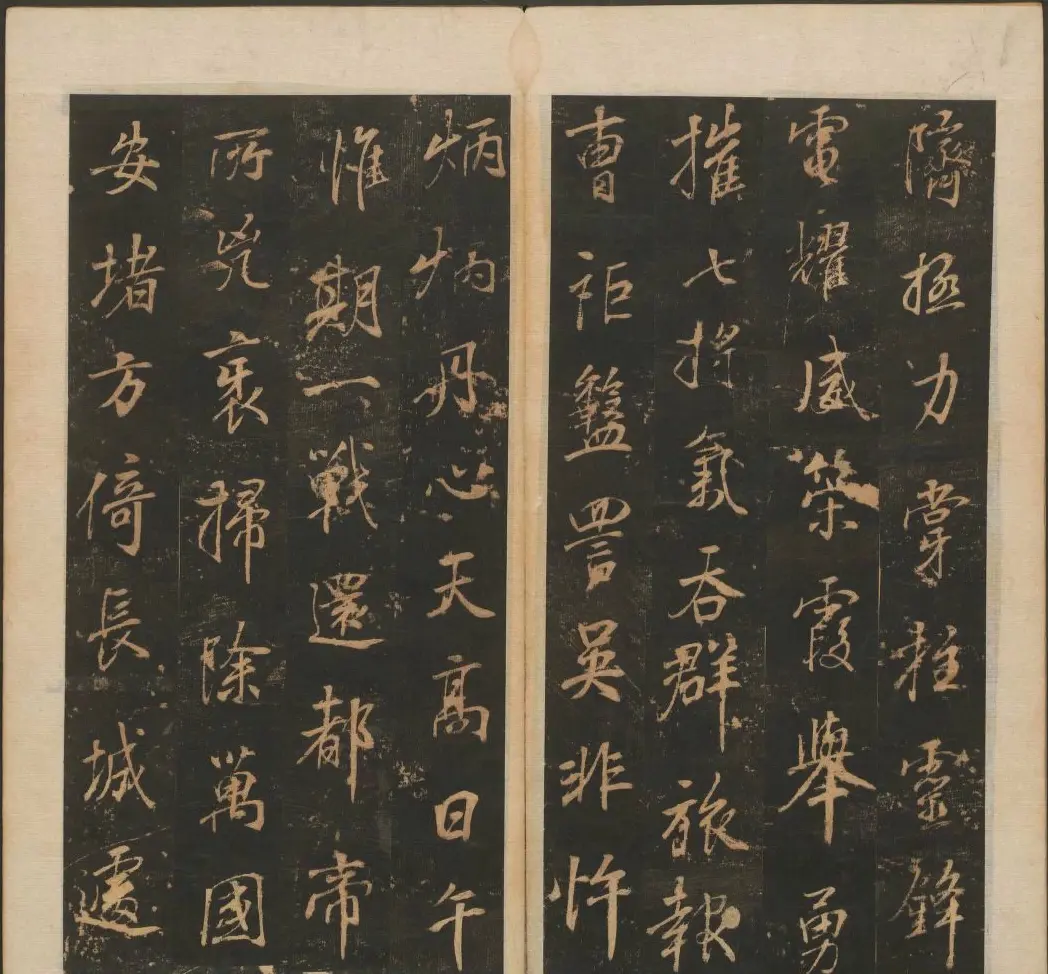 隮極力掌柱靈鋒
電耀威策霞舉勇
摧七將氣吞群旅報
曹詎詈吳非忤
炳炳丹心天高日午
惟期一戰還都帝
所兇衰掃除萬國
安堵方倚長城遽